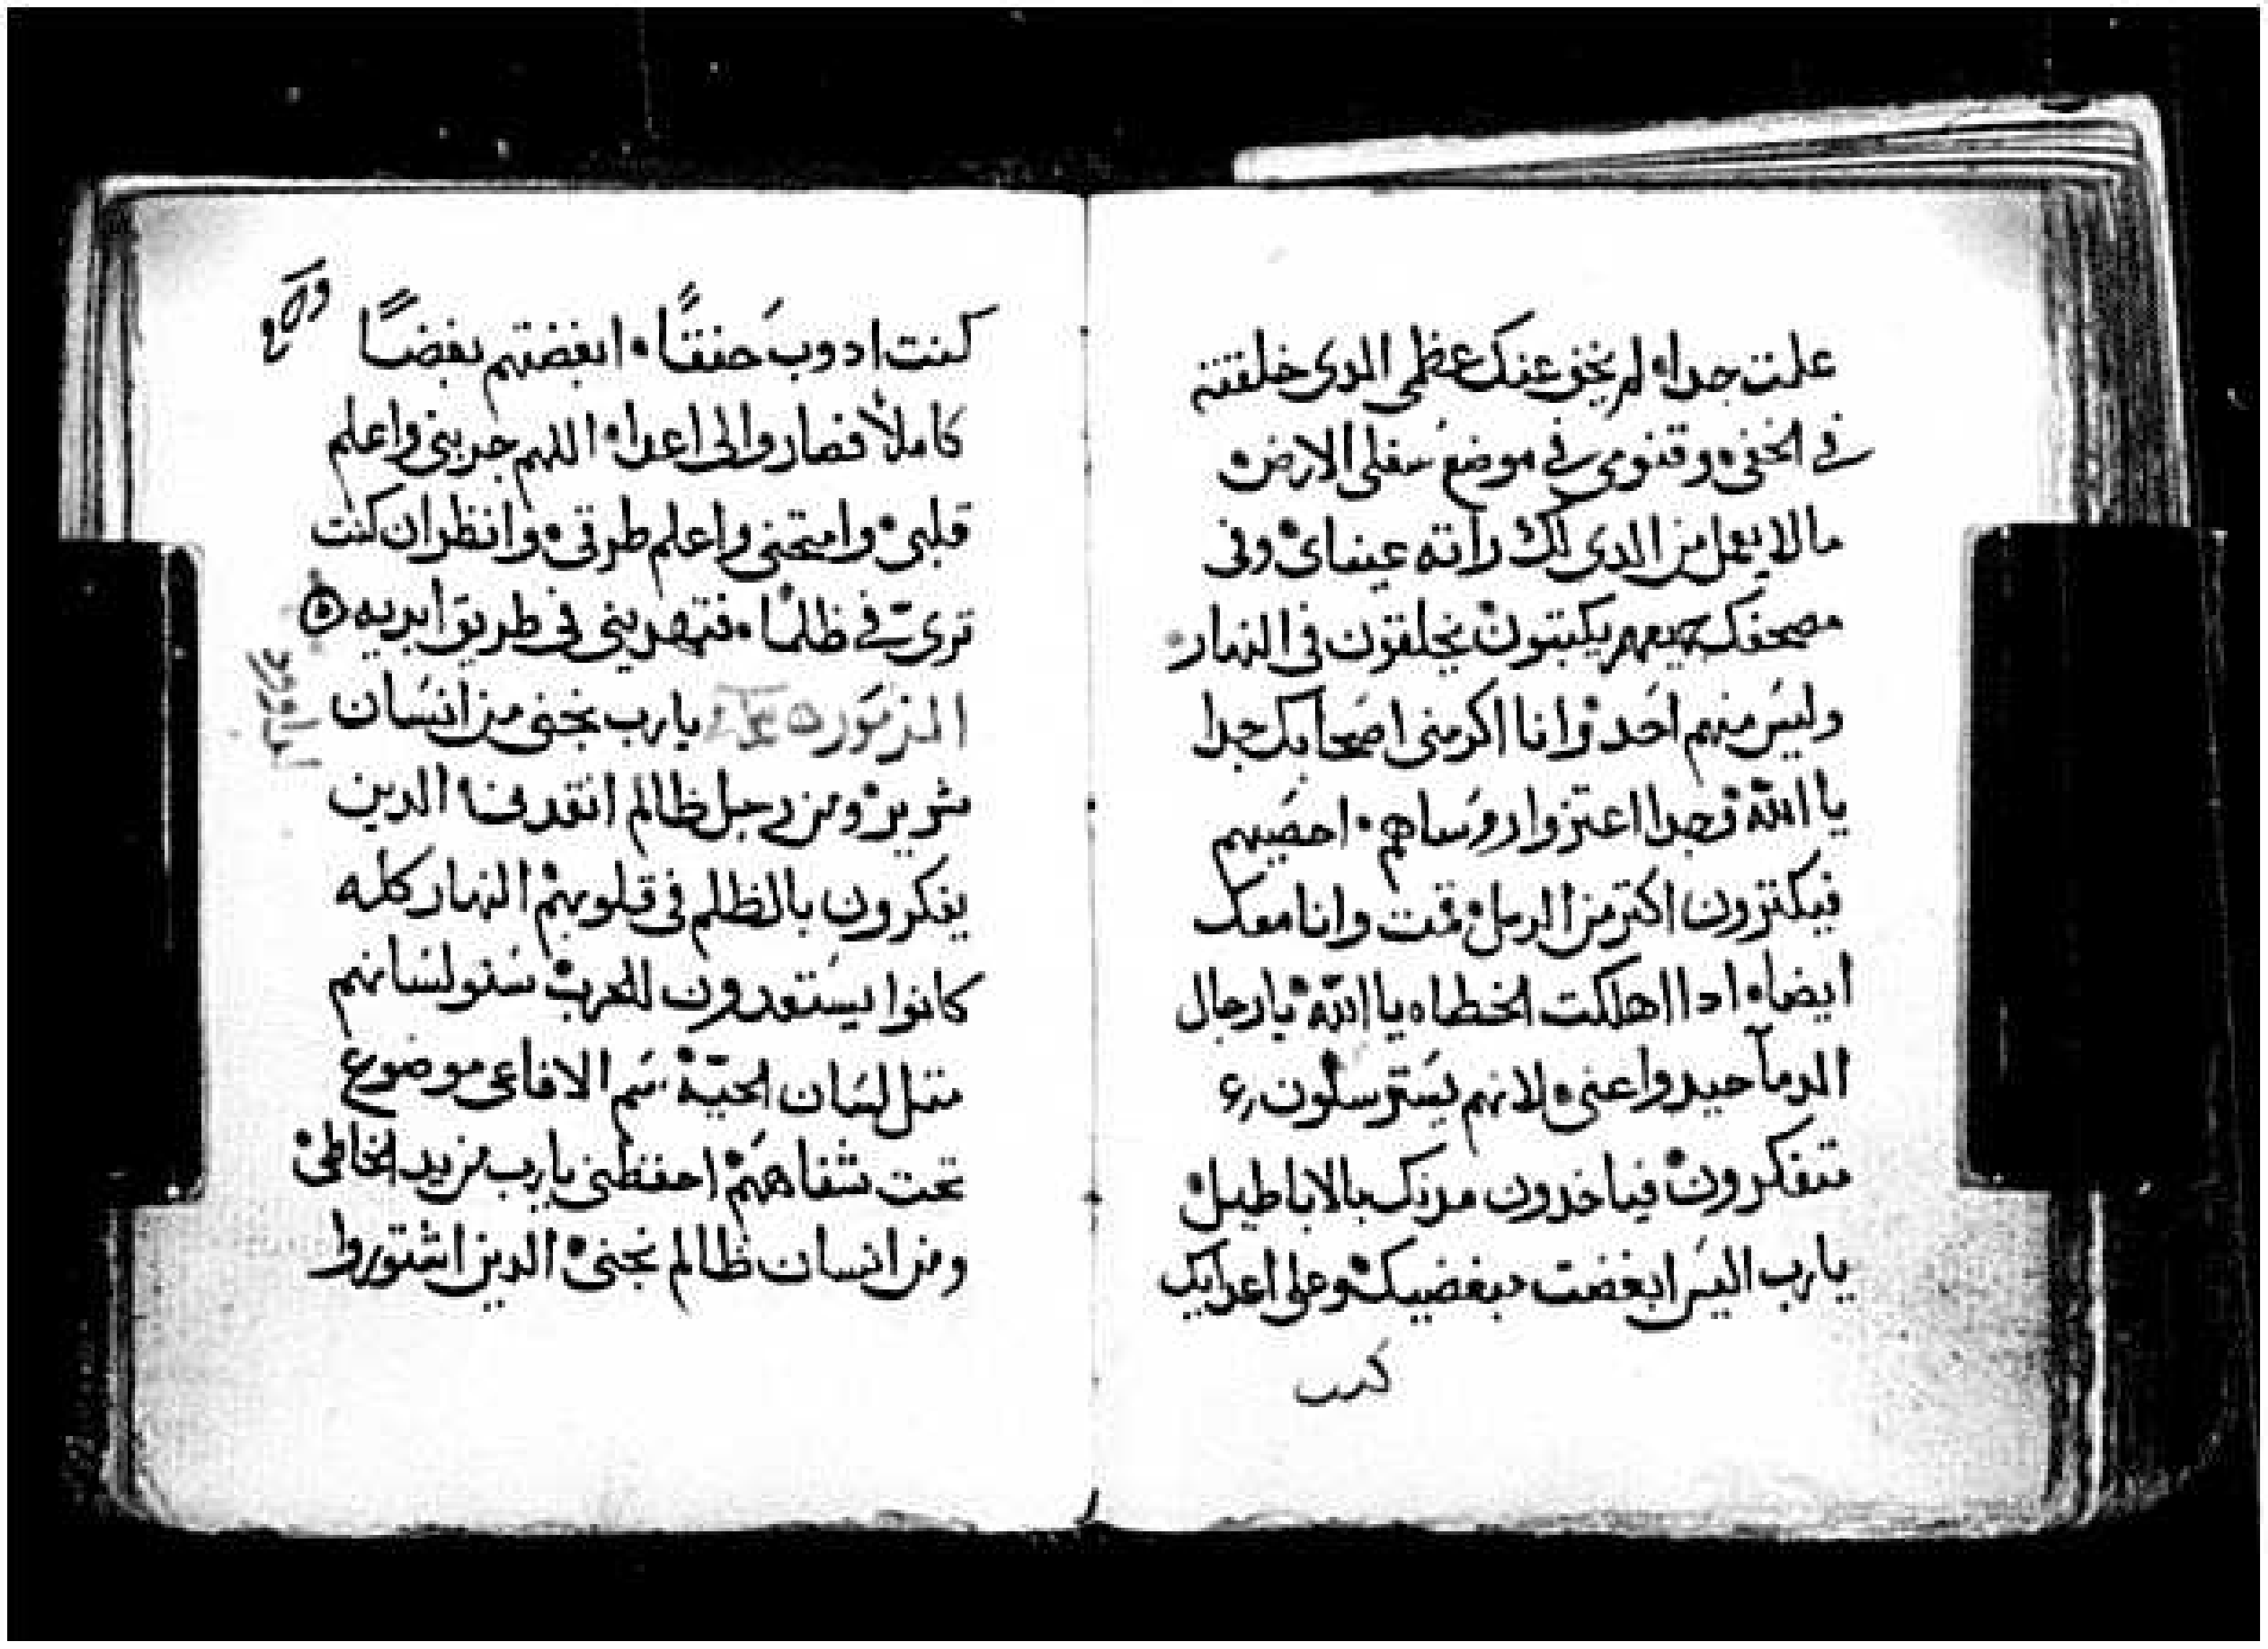 علمت جدا۰ لم يخف عنك عظمى الدى خلقته
في الخفى۰ وقنومى في موضع سفلى الارض۰
مالا يعمل من الدى لك راته عيناى۰ وفى
مصحفك جميعهم يكتبون۰ يخلقون فى النهار۰
وليس منهم احد۰ وانا اكرمنى اصحابك جدا
يا الله۰ وجدا اعتزوا روساهم۰ احصيهم
فيكترون اكتر من الرمل۰ قمت وانا معك
ايضا۰ ادا اهلكت الخطاه يا الله۰ يا رجال
الدمآ حيدوا عنى۰ لانهم يسترسلون
تتفكرون۰ فياخدون مدنك بالاباطيل۰
يارب اليس ابغضت مبغضيك۰ وعلى اعدايك
كنت
كنت ادوب حنقاً۰ ابغضتهم بغضاً
كاملاً فصاروا لى اعدا۰ اللهم جربنى واعلم
قلبى۰ وامتحنى واعلم طرقى۰ وانظر ان كنت
ترىّ في ظلما۰ فتهدينى فى طريق ابديه
المزمور يارب نجنى من انسان
شرير۰ ومن رجل ظالم انقدنى۰ الدين
يفكرون بالظلم فى قلوبهم۰ النهار كله
كانوا يستعدون للحرب۰ سنو لسانهم
متل لسان الحيّة۰ سم الافاعى موضوع
تحت شفاهم۰ احفظنى يارب من يد الخاطى۰
ومن انسان ظالم نجنى۰ الدين اشتوروا